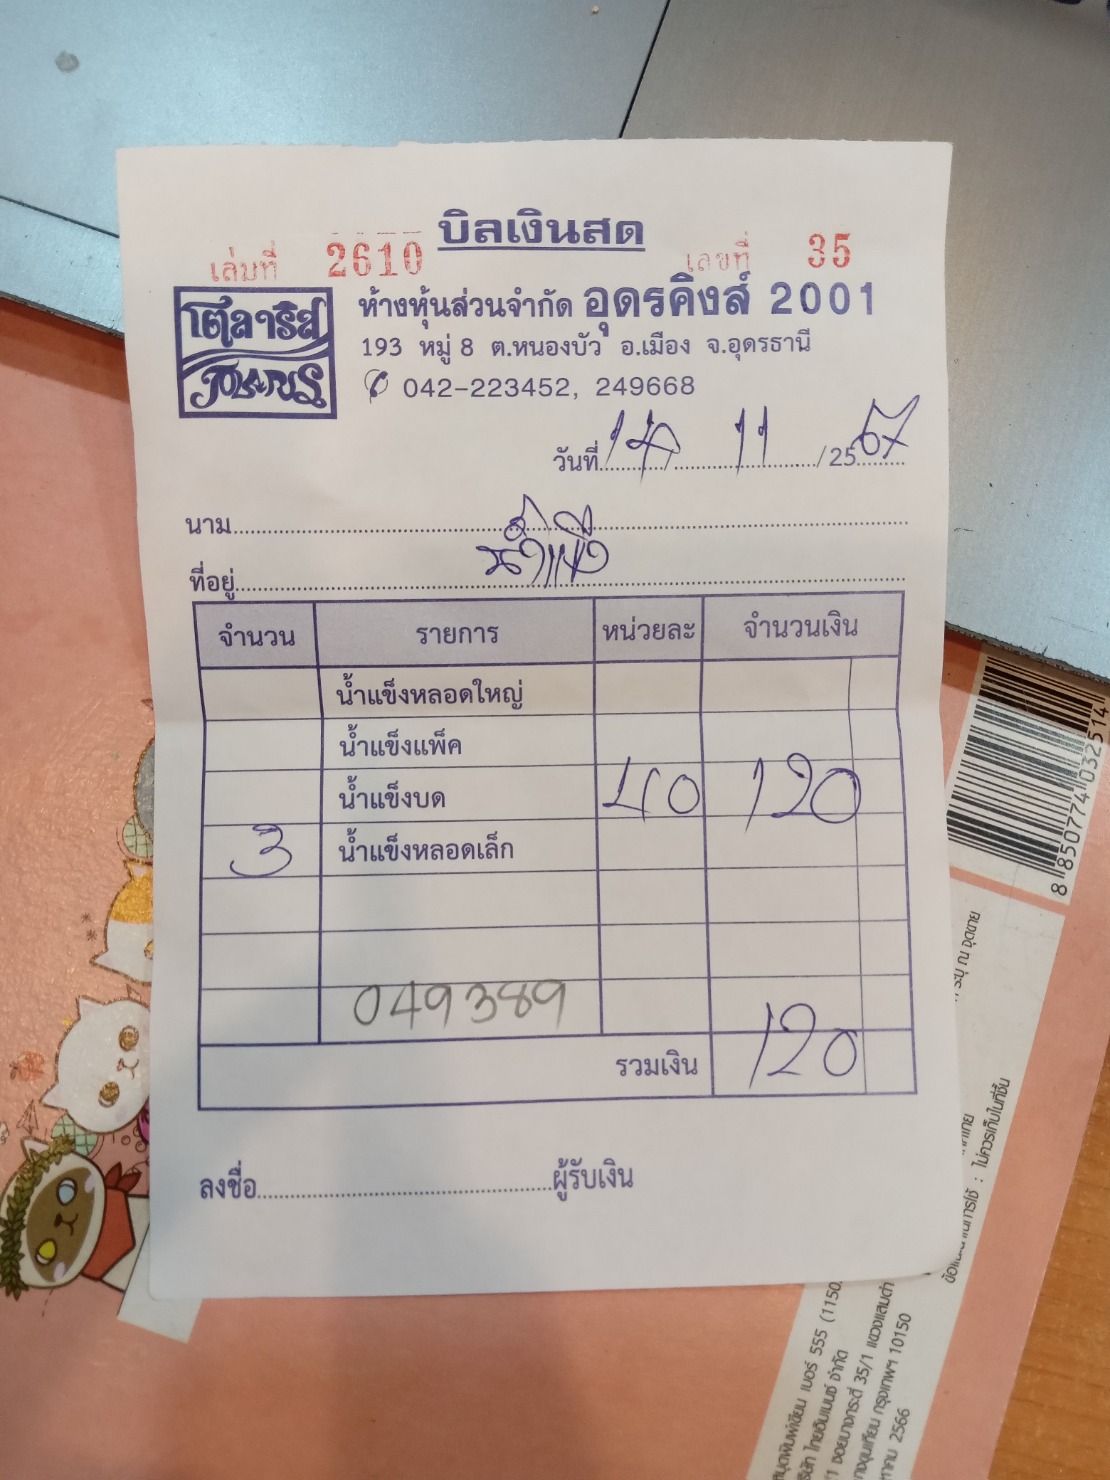 บิลเงินสด
เล่มที่ 2610 เลขที่ 35
โตลาริส
POLARIS
ห้างหุ้นส่วนจำกัด อุดรคิงส์ 2001
193 หมู่ 8 ต.หนองบัว อ.เมือง จ.อุดรธานี
042-223452, 249668
วันที่ 14 11 /25 67
นาม
น้ำแข็ง
ที่อยู่
จำนวน รายการ หน่วยละ จำนวนเงิน
น้ำแข็งหลอดใหญ่
น้ำแข็งแพ็ค
น้ำแข็งบด 40 120
3 น้ำแข็งหลอดเล็ก
049389
รวมเงิน 120
ลงชื่อ ผู้รับเงิน
8 850774 032514
ข้อแนะนำในการใช้ : ไม่ควรเก็บในที่ชื้น
สมุดพิมพ์เขียน เบอร์ 555 (1150
บริษัท ไทยอินเมนซ์ จำกัด
1 ซอยบางกระดี่ 35/1 แขวงแสมดำ
บางขุนเทียน กรุงเทพฯ 10150
2566